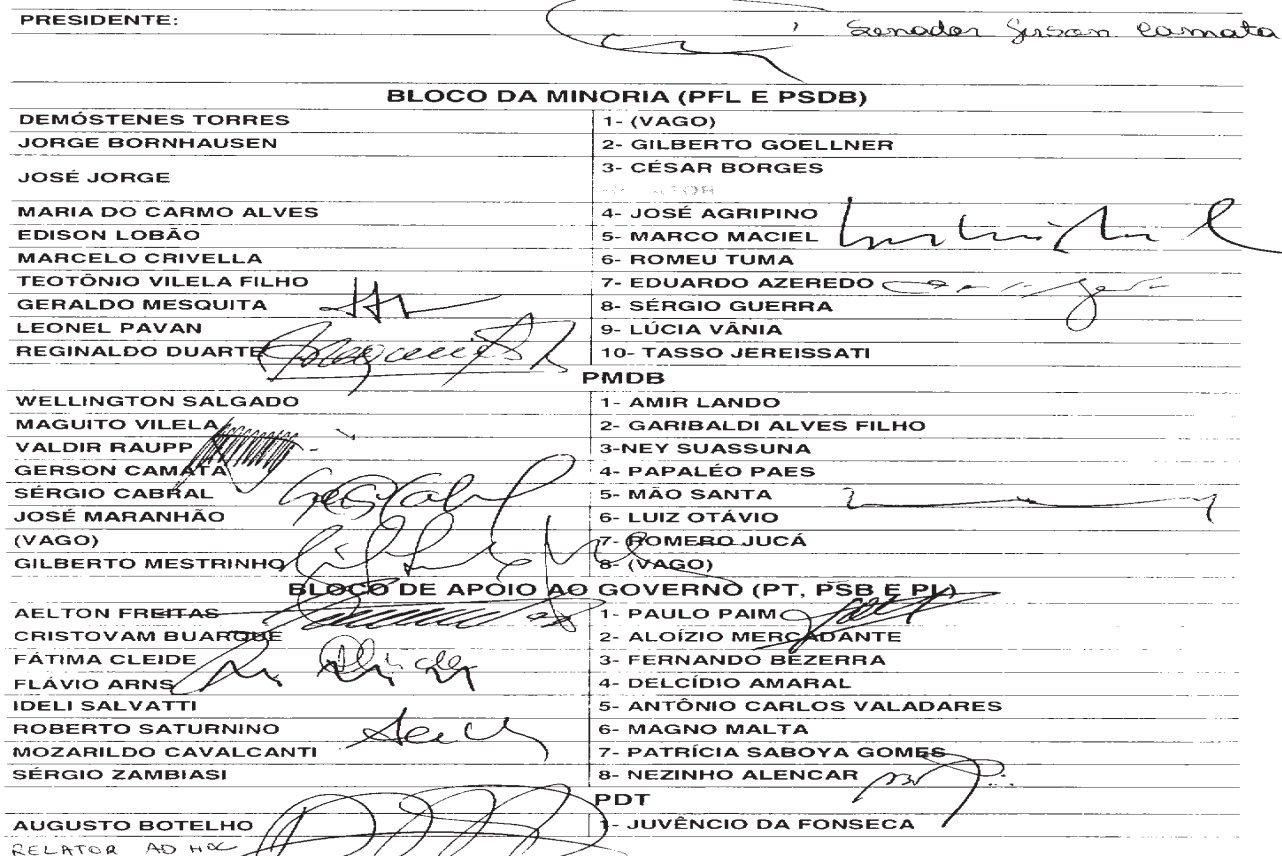 PRESIDENTE: Senador Gerson Camata
BLOCO DA MINORIA (PFL E PSDB)
DEMÓSTENES TORRES 1- (VAGO)
JORGE BORNHAUSEN 2- GILBERTO GOELLNER
JOSÉ JORGE 3- CÉSAR BORGES
MARIA DO CARMO ALVES 4- JOSÉ AGRIPINO
EDISON LOBÃO 5- MARCO MACIEL
MARCELO CRIVELLA 6- ROMEU TUMA
TEOTÔNIO VILELA FILHO 7- EDUARDO AZEREDO
GERALDO MESQUITA 8- SÉRGIO GUERRA
LEONEL PAVAN 9- LÚCIA VÂNIA
REGINALDO DUARTE 10- TASSO JEREISSATI
PMDB
WELLINGTON SALGADO 1- AMIR LANDO
MAGUITO VILELA 2- GARIBALDI ALVES FILHO
VALDIR RAUPP 3-NEY SUASSUNA
GERSON CAMATA 4- PAPALÉO PAES
SÉRGIO CABRAL 5- MÃO SANTA
JOSÉ MARANHÃO 6- LUIZ OTÁVIO
(VAGO) 7- ROMERO JUCÁ
GILBERTO MESTRINHO 8- (VAGO)
BLOCO DE APOIO AO GOVERNO (PT, PSB E PL)
AELTON FREITAS 1- PAULO PAIM
CRISTOVAM BUARQUE 2- ALOÍZIO MERCADANTE
FÁTIMA CLEIDE 3- FERNANDO BEZERRA
FLÁVIO ARNS 4- DELCÍDIO AMARAL
IDELI SALVATTI 5- ANTÔNIO CARLOS VALADARES
ROBERTO SATURNINO 6- MAGNO MALTA
MOZARILDO CAVALCANTI 7- PATRÍCIA SABOYA GOMES
SÉRGIO ZAMBIASI 8- NEZINHO ALENCAR
PDT
AUGUSTO BOTELHO 1- JUVÊNCIO DA FONSECA
RELATOR AD HOC